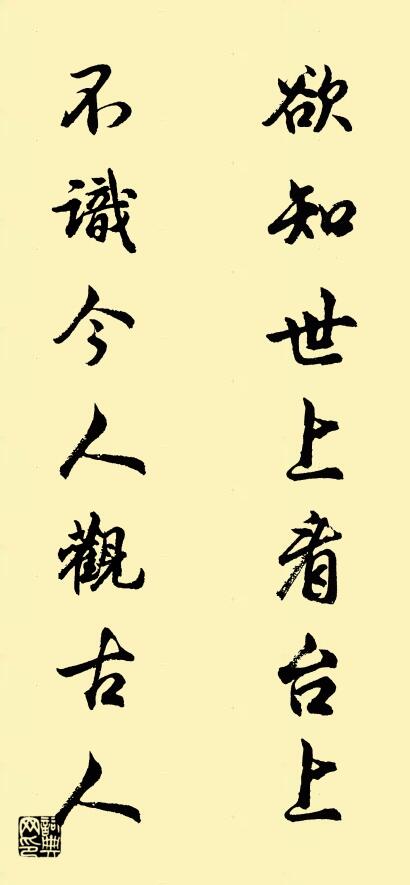 欲知世上看台上
不識今人觀古人
詞典網印